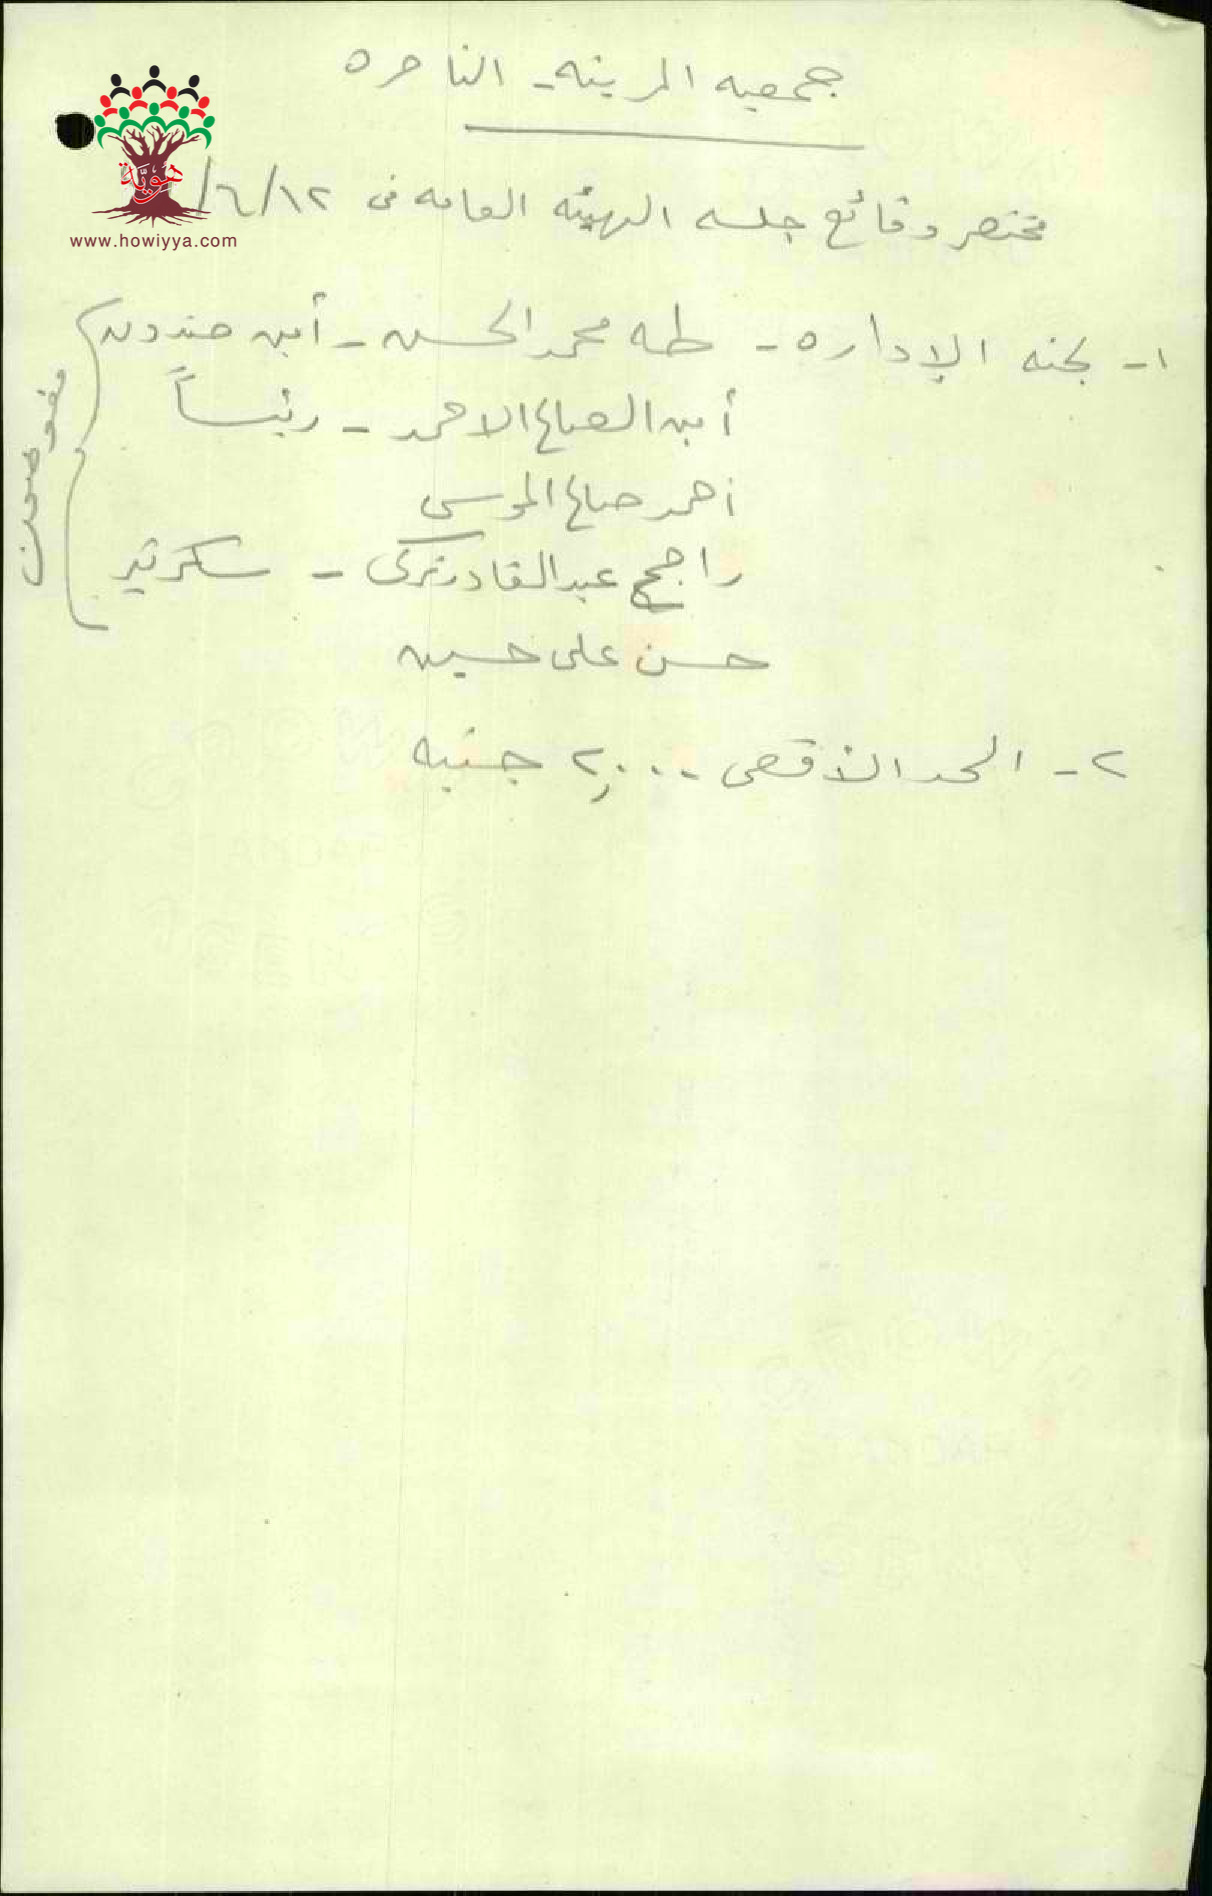 جمعيه المدينه - الناصره
هوية
www.howiyya.com
مختصر وقائع جلسه الهيئه العامه فى ١٢/٦/
١- لجنه الإداره - طه محمد الحسن - أمين صندوق
أمين الصالح الاحمد - رئيساً
أحمد صالح الموسى
راجح عبد القادر تركى - سكرتير
حسن على حسين
مفوضون
٢- الحد الأقصى - ٢,٠٠٠ جنيه